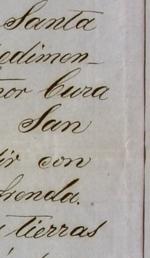 Santa
edimen-
nor Cura
San
tir con
hienda.
tierras